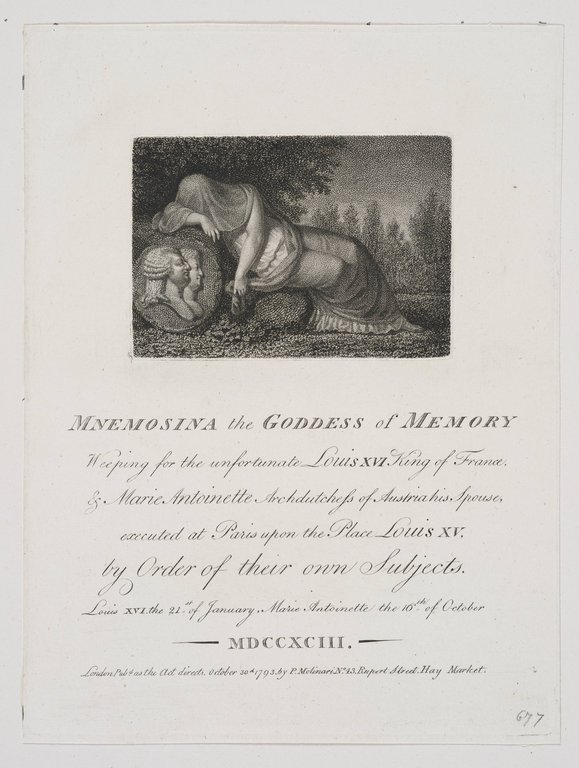 MNEMOSINA the GODDESS of MEMORY
Weeping for the unfortunate Louis XVI King of France.
& Marie Antoinette Archdutchess of Austria his Spouse,
executed at Paris upon the Place Louis XV.
by Order of their own Subjects.
Louis XVI. the 21.st of January, Marie Antoinette the 16.th of October
MDCCXCIII.
London Pub.d as the Act directs, October 30.th 1793, by P. Molinari No. 43, Rupert Street, Hay Market.
677